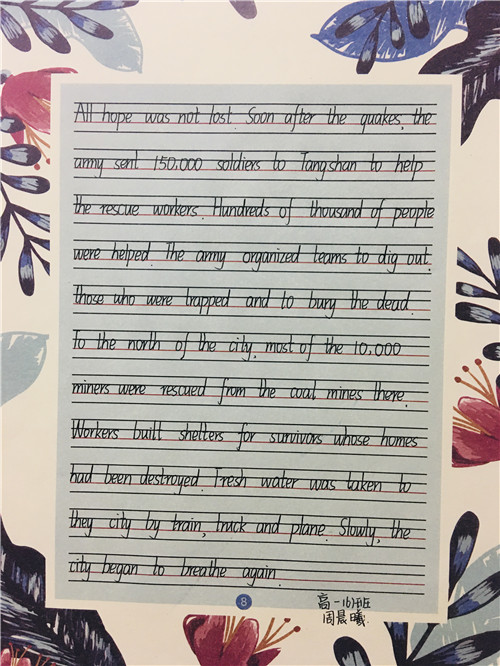 All hope was not lost. Soon after the quakes, the
army sent 150,000 soldiers to Tangshan to help
the rescue workers. Hundreds of thousand of people
were helped. The army organized teams to dig out
those who were trapped and to bury the dead.
To the north of the city, most of the 10,000
miners were rescued from the coal mines there.
Workers built shelters for survivors whose homes
had been destroyed. Fresh water was taken to
they city by train, truck and plane. Slowly, the
city began to breathe again.
8
高一16班
周晨曦